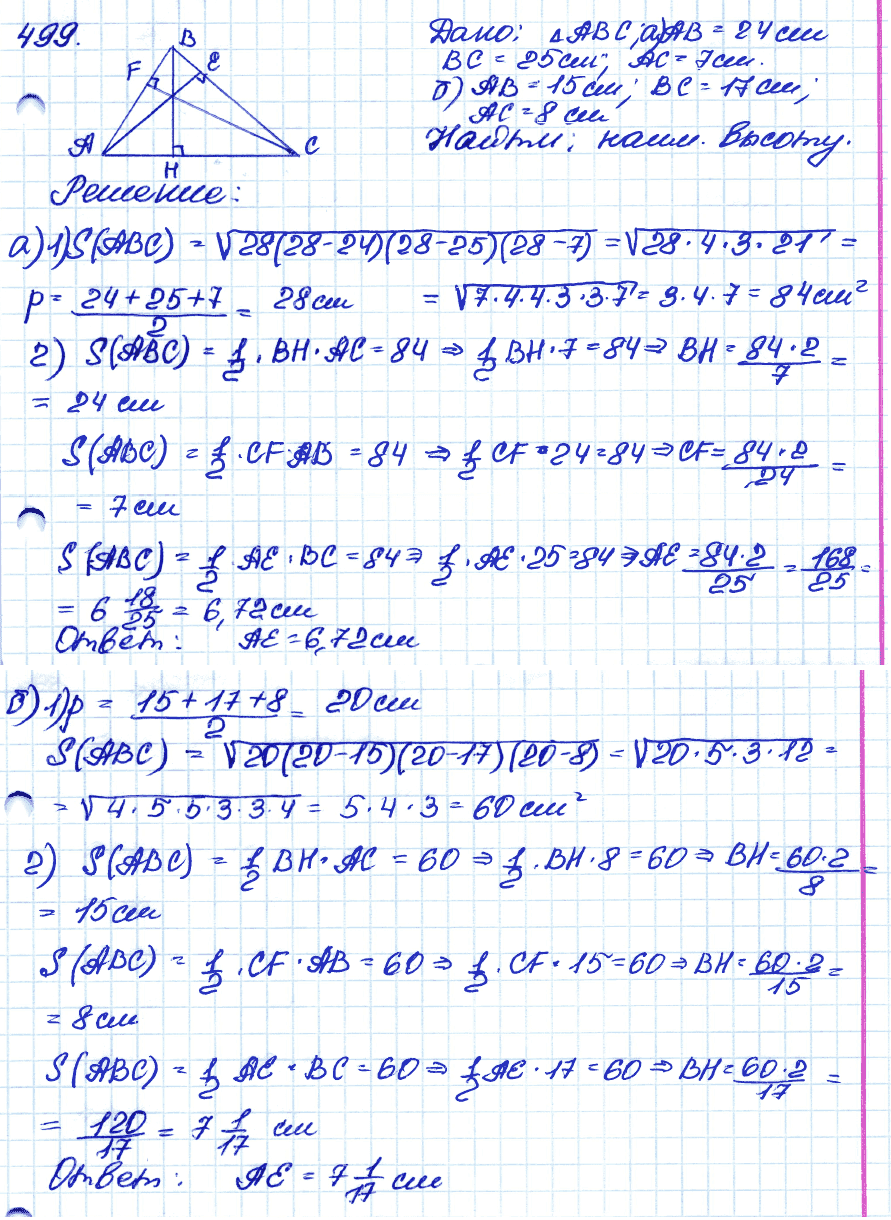 499.
B
F
E
A
H
C
Дано: △ABC; а) AB = 24 cm
BC = 25cm; AC = 7cm.
б) AB = 15cm; BC = 17cm;
AC = 8 cm
Найти: наим. высоту.
Решение:
а) 1) S(ABC) = √28(28-24)(28-25)(28-7) = √28·4·3·21 =
p = (24+25+7)/2 = 28cm = √7·4·4·3·3·7 = 3·4·7 = 84cm²
2) S(ABC) = 1/2 · BH · AC = 84 ⇒ 1/2 BH · 7 = 84 ⇒ BH = (84·2)/7 =
= 24 cm
S(ABC) = 1/2 · CF · AB = 84 ⇒ 1/2 CF · 24 = 84 ⇒ CF = (84·2)/24 =
= 7cm
S(ABC) = 1/2 AE · BC = 84 ⇒ 1/2 · AE · 25 = 84 ⇒ AE = (84·2)/25 = 168/25 =
= 6 18/25 = 6,72cm
Ответ: AE = 6,72cm
б) 1) p = (15+17+8)/2 = 20cm
S(ABC) = √20(20-15)(20-17)(20-8) = √20·5·3·12 =
= √4·5·5·3·3·4 = 5·4·3 = 60cm²
2) S(ABC) = 1/2 BH · AC = 60 ⇒ 1/2 · BH · 8 = 60 ⇒ BH = (60·2)/8 =
= 15cm
S(ABC) = 1/2 · CF · AB = 60 ⇒ 1/2 · CF · 15 = 60 ⇒ BH = (60·2)/15 =
= 8cm
S(ABC) = 1/2 AE · BC = 60 ⇒ 1/2 AE · 17 = 60 ⇒ BH = (60·2)/17 =
= 120/17 = 7 1/17 cm
Ответ: AE = 7 1/17 cm